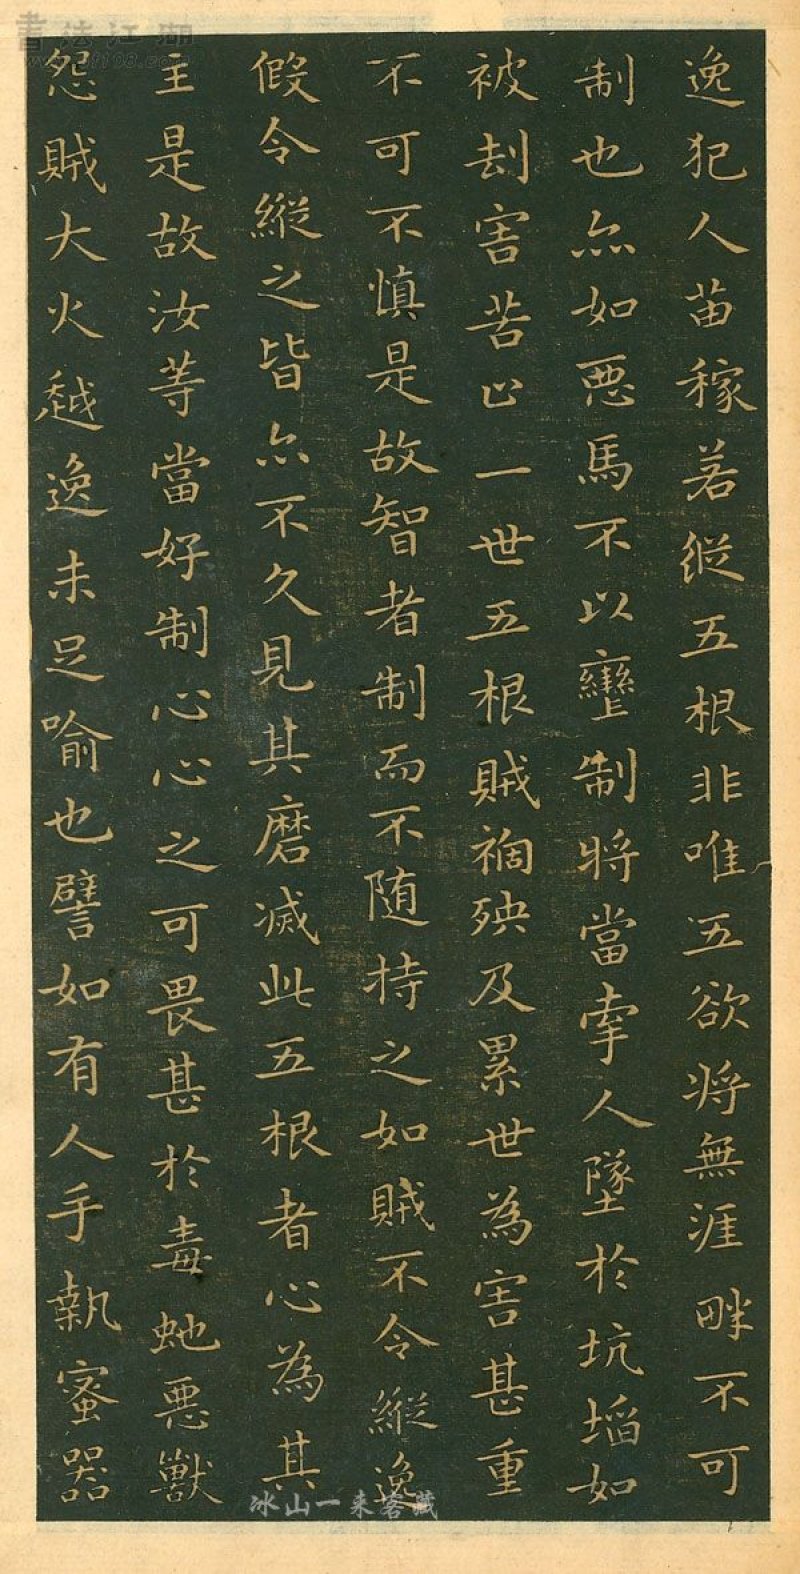 逸犯人苗稼若縱五根非唯五欲將無涯畔不可
制也亦如惡馬不以轡制將當牽人墜於坑埳如
被刦害苦止一世五根賊禍殃及累世為害甚重
不可不慎是故智者制而不随持之如賊不令縱逸
假令縱之皆亦不久見其磨滅此五根者心為其
主是故汝等當好制心心之可畏甚於毒虵惡獸
怨賊大火越逸未足喻也譬如有人手執蜜器
書法江湖
冰山一来客藏